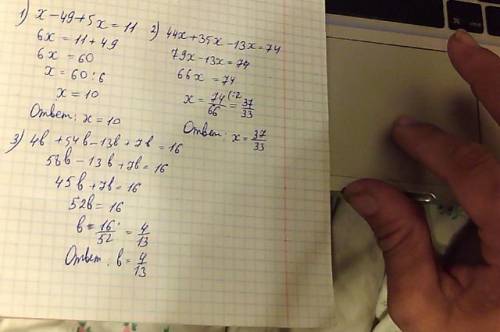 1) x-49+5x=11
6x = 11+49
6x = 60
x = 60:6
x = 10
Ответ: x = 10
2) 44x+35x-13x=74
79x-13x=74
66x = 74
x = 74/66 (:2 = 37/33
Ответ: x = 37/33
3) 4b+54b-13b+7b=16
58b-13b+7b=16
45b+7b=16
52b=16
b = 16/52 = 4/13
Ответ: b = 4/13